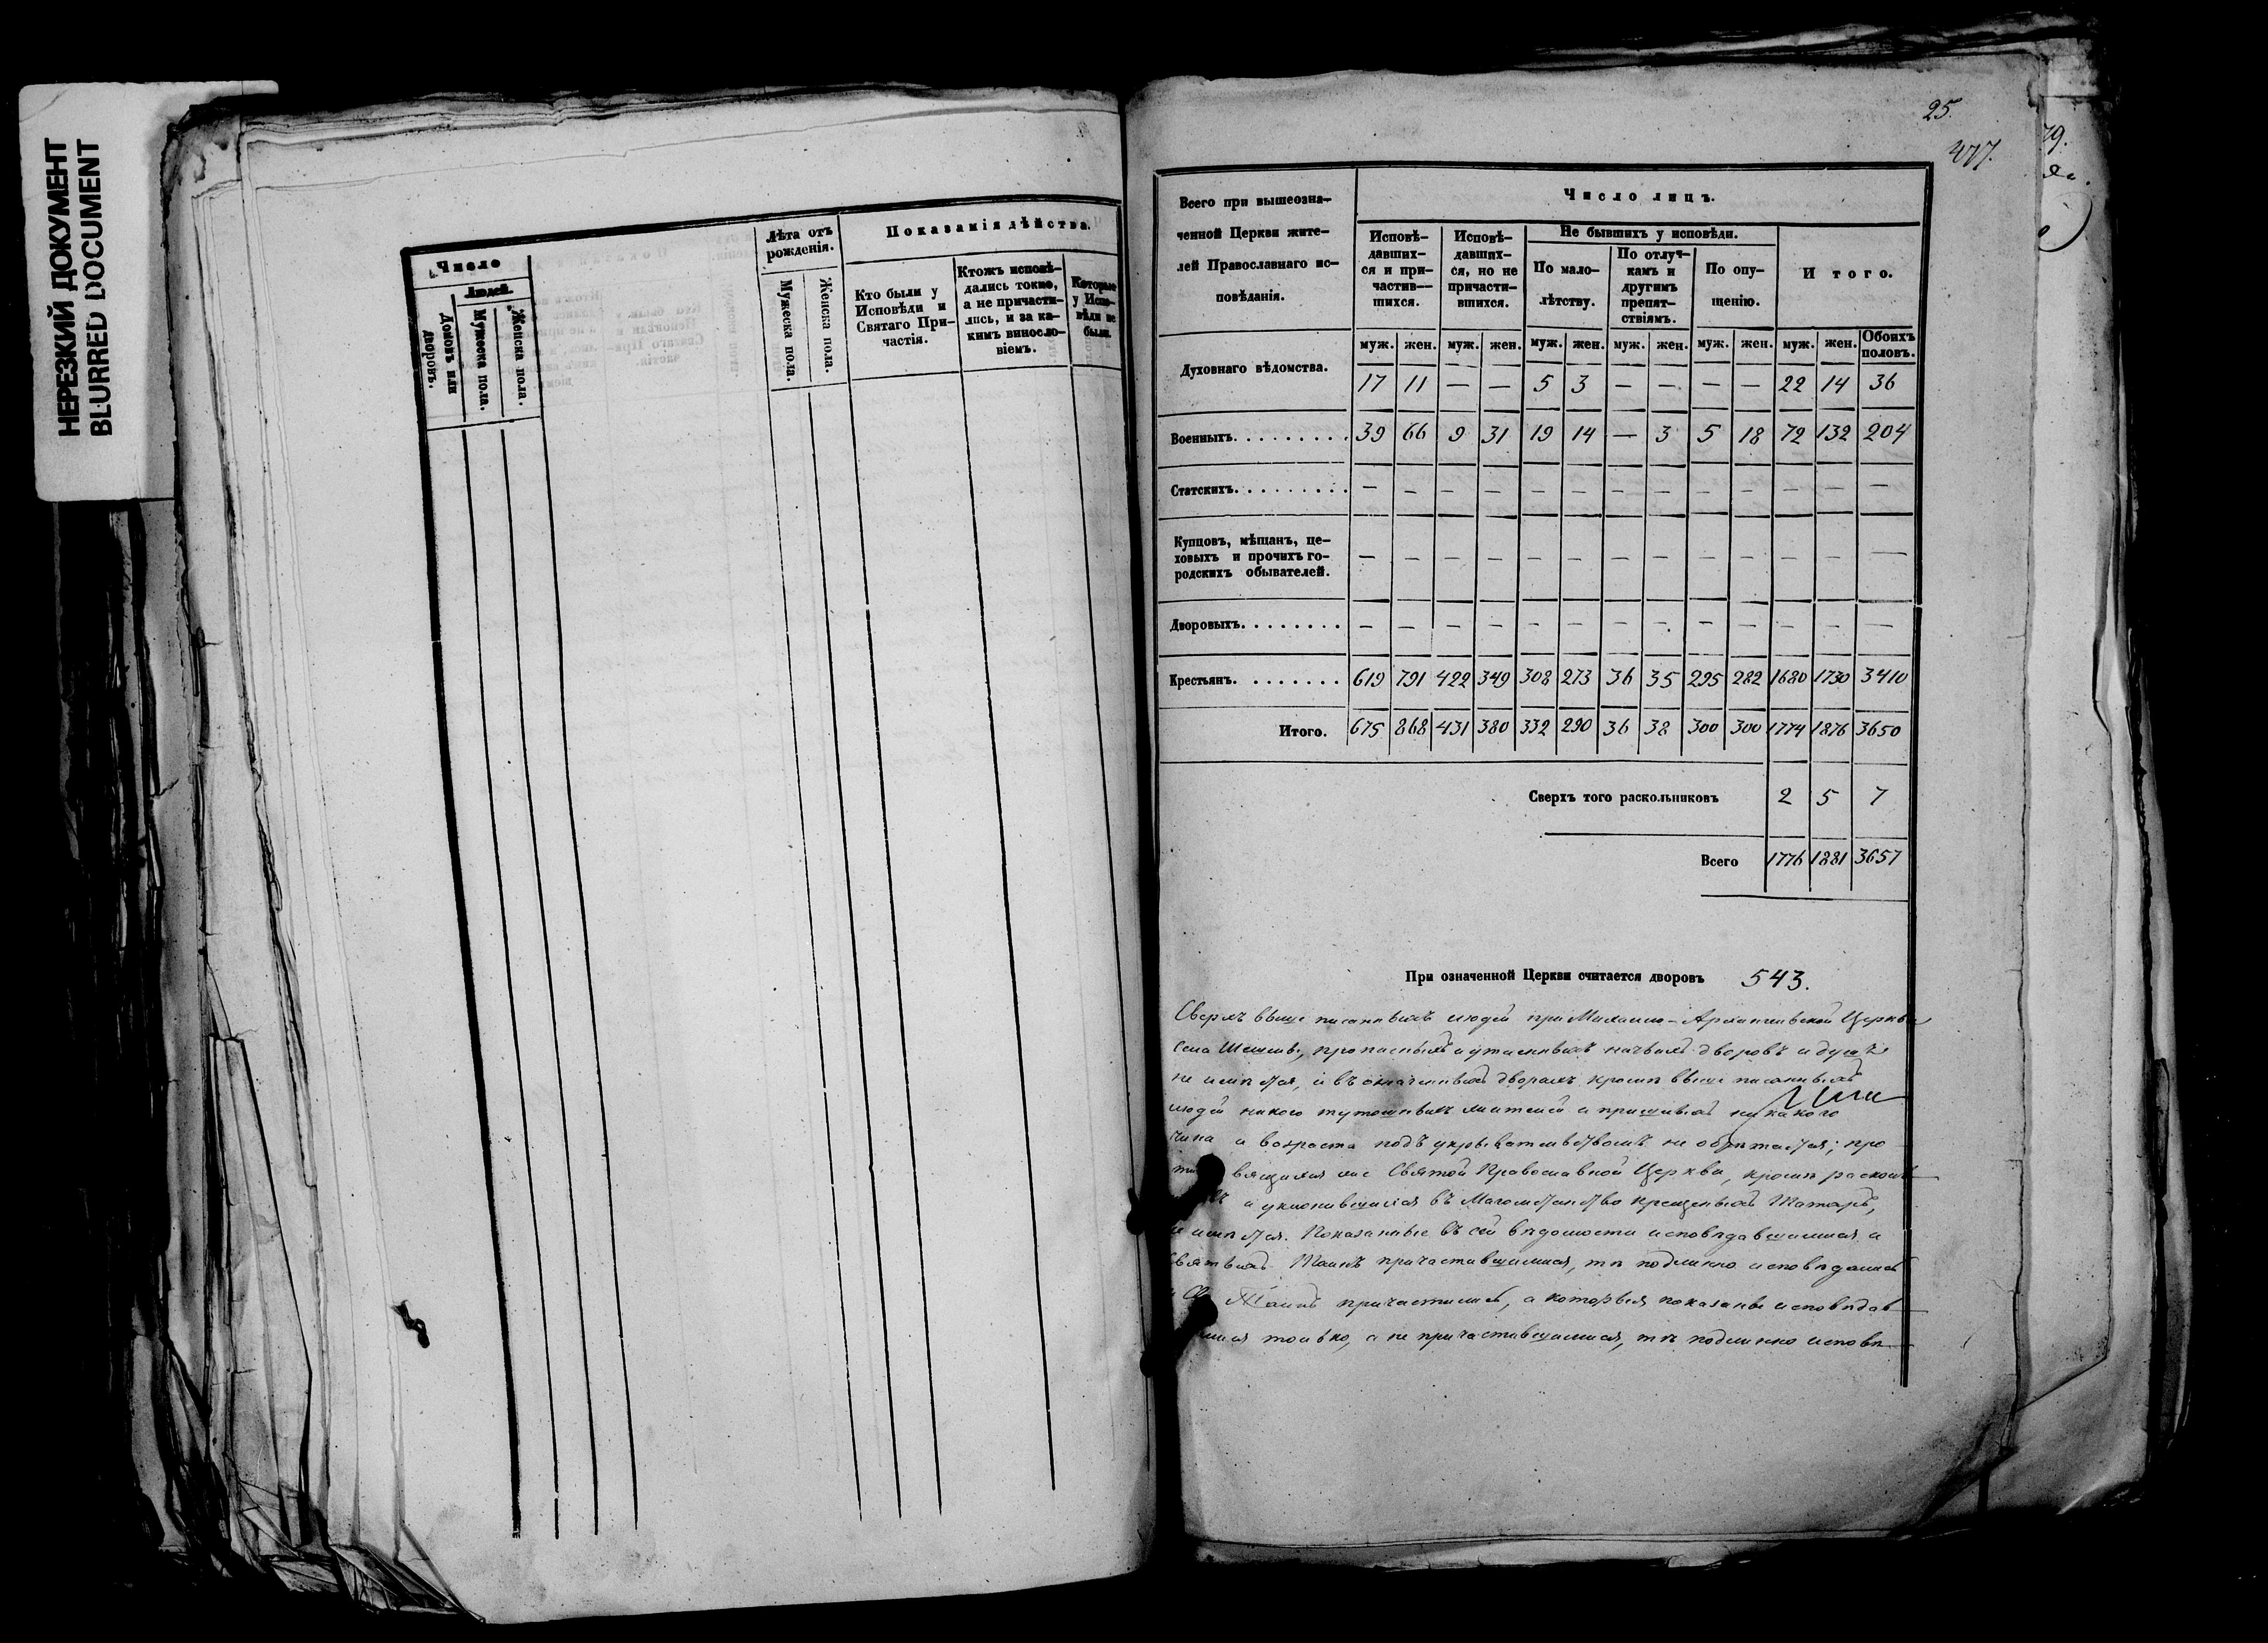 НЕРЕЗКИЙ ДОКУМЕНТ
BLURRED DOCUMENT
Число
Людей.
Домовъ или дворовъ.
Мужеска пола.
Женска пола.
Лѣта отъ рожденія.
Мужеска пола.
Женска пола.
Показанія дѣйства.
Кто были у Исповѣди и Святаго Причастія.
Ктожъ исповѣдались токмо, а не причастились, и за какимъ винословіемъ.
Которые у Исповѣди не были.
25.
477.
79.
Всего при вышеозначенной Церкви жителей Православнаго исповѣданія.
Число лицъ.
Исповѣдавшихся и причастив—шихся.
Исповѣдавшихся, но не причастившихся.
Не бывшихъ у исповѣди.
По малолѣтству.
По отлучкамъ и другимъ препятствіямъ.
По опущенію.
Итого.
муж. жен. муж. жен. муж. жен. муж. жен. муж. жен. муж. жен. Обоихъ половъ.
Духовнаго вѣдомства. 17 11 — — 5 3 — — — — 22 14 36
Военныхъ......... 39 66 9 31 19 14 — 3 5 18 72 132 204
Статскихъ......... — — — — — — — — — — — — —
Купцовъ, мѣщанъ, цеховыхъ и прочихъ городскихъ обывателей. — — — — — — — — — — — — —
Дворовыхъ........ — — — — — — — — — — — — —
Крестьянъ. ....... 619 791 422 349 308 273 36 35 295 282 1680 1730 3410
Итого. 675 868 431 380 332 290 36 38 300 300 1774 1876 3650
Сверхъ того раскольниковъ 2 5 7
Всего 1776 1881 3657
При означенной Церкви считается дворовъ 543.
Сверхъ выше писанныхъ людей при Михаило-Архангельской Церкви
села прописныхъ и утаенныхъ дворовъ и душъ
не имѣется, и въ означенныхъ дворахъ кромѣ выше писанныхъ
людей никого тутошныхъ жителей и пришлыхъ никакого
чина и возраста подъ укрывательствомъ не обрѣтается; про
вящихся же Святой Православной Церкви, кромѣ расколь
и уклонившихся въ Магометанство крещеныхъ Татаръ,
не имѣется. Показанные въ сей вѣдомости исповѣдавшимися и
Святыхъ Таинъ причастившимися, тѣ подлинно исповѣдались
и Св. Таинъ причастились, а которыя показаны исповѣдав
шимися только, а не причастившимися, тѣ подлинно исповѣ